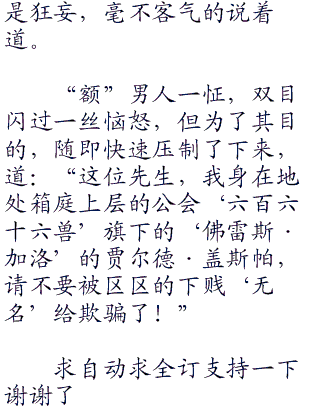 是狂妄，毫不客气的说着
道。
“额”男人一怔，双目
闪过一丝恼怒，但为了其目
的，随即快速压制了下来，
道：“这位先生，我身在地
处箱庭上层的公会‘六百六
十六兽’旗下的‘佛雷斯·
加洛’的贾尔德·盖斯帕，
请不要被区区的下贱‘无
名’给欺骗了！”
求自动求全订支持一下
谢谢了